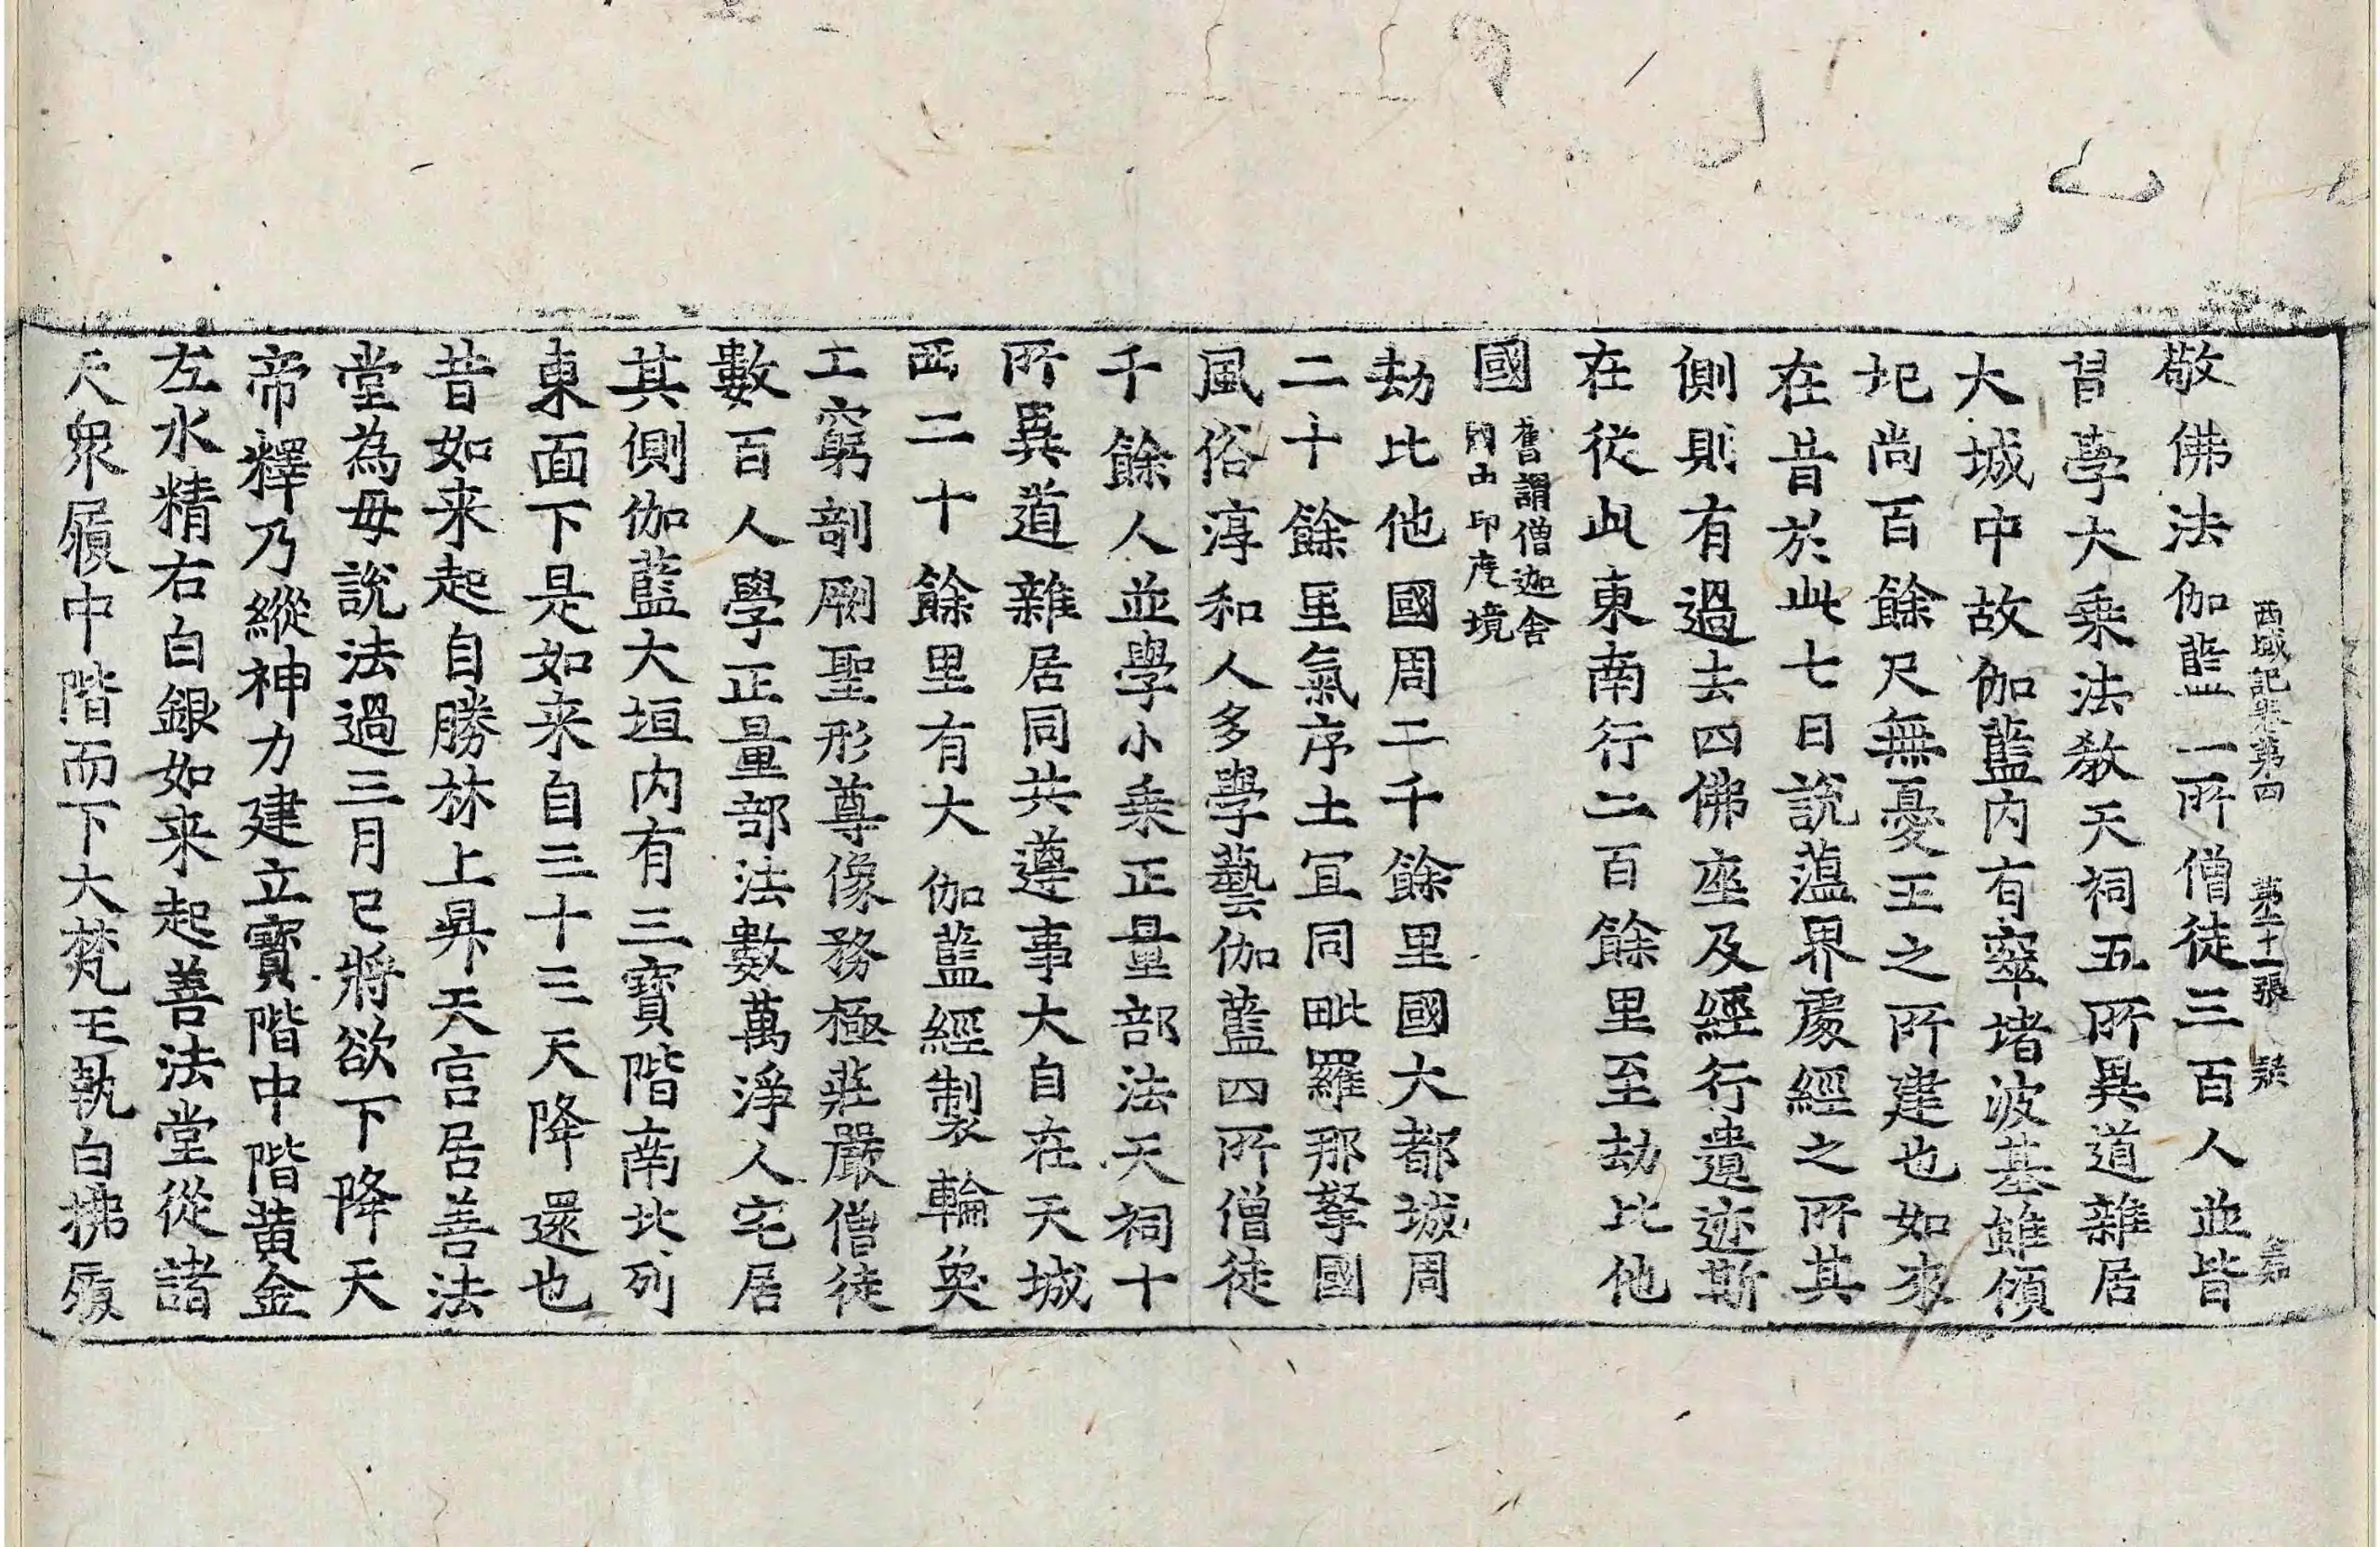 西域記卷第四 第二十一張 㲋
敬佛法伽藍一所僧徒三百人並皆
習學大乘法教天祠五所異道雜居
大城中故伽藍内有窣堵波基雖傾
圮尚百餘尺無憂王之所建也如來
在昔於此七日說蘊界處經之所其
側則有過去四佛座及經行遺迹斯
在從此東南行二百餘里至劫比他
國
舊謂僧迦舍
國中印度境
劫比他國周二千餘里國大都城周
二十餘里氣序土冝同毗羅那拏國
風俗淳和人多學藝伽藍四所僧徒
千餘人並學小乘正量部法天祠十
所異道雜居同共遵事大自在天城
西二十餘里有大伽藍經製輪奐
工窮剞劂聖形尊像務極莊嚴僧徒
數百人學正量部法數萬淨人宅居
其側伽藍大垣内有三寶階南北列
東面下是如来自三十三天降還也
昔如来起自勝林上昇天宮居善法
堂為母說法過三月已將欲下降天
帝釋乃縱神力建立寶階中階黃金
左水精右白銀如来起善法堂從諸
天衆履中階而下大梵王執白拂履